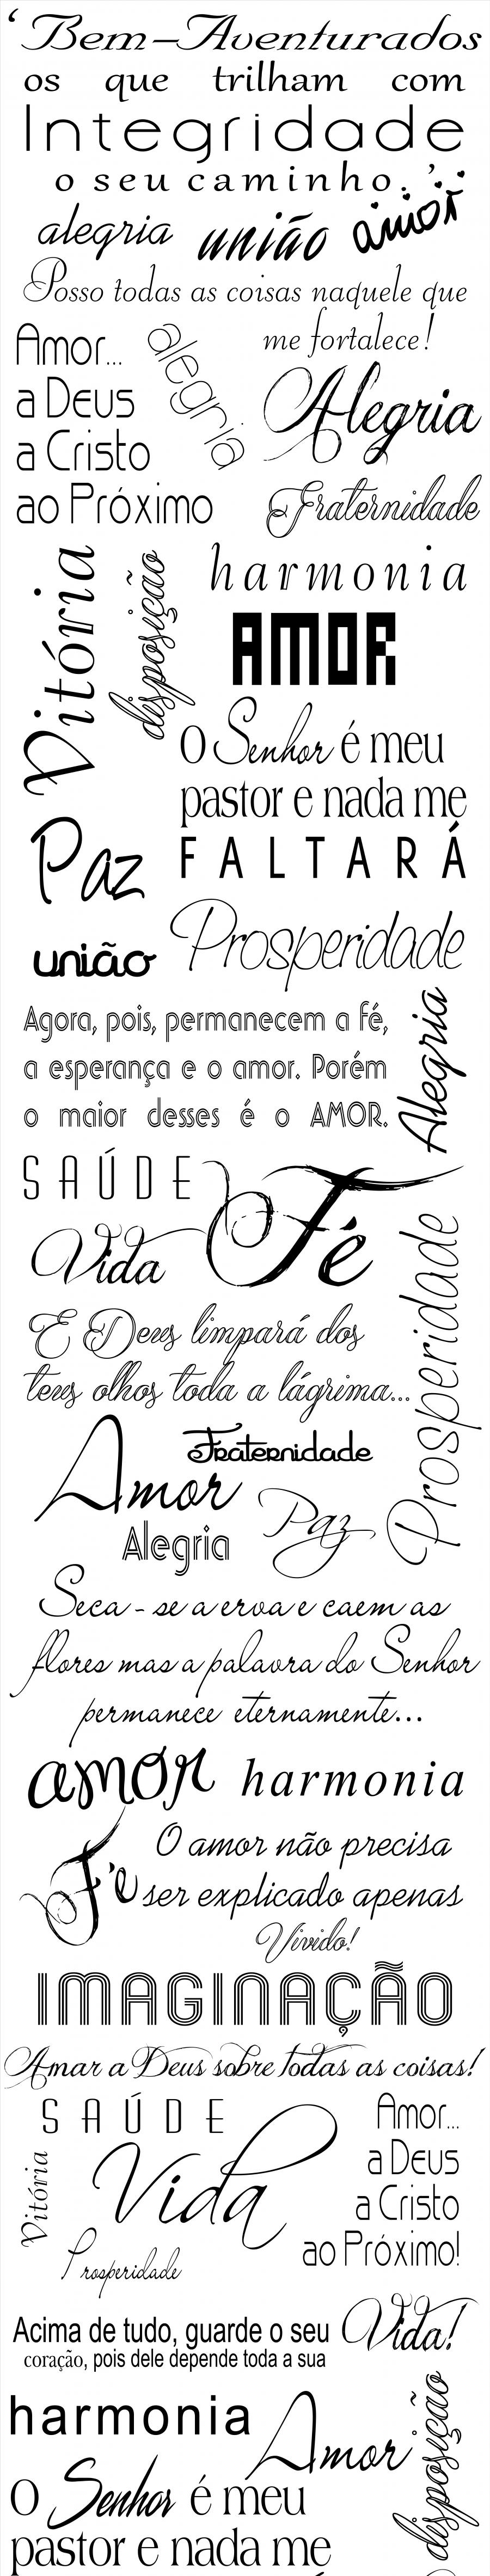 ‘Bem-Aventurados
os que trilham com
Integridade
o seu caminho.’
alegria união amor
Posso todas as coisas naquele que
me fortalece!
Amor...
a Deus
a Cristo
ao Próximo
alegria
Alegria
Fraternidade
Vitória
disposição
harmonia
AMOR
O Senhor é meu
pastor e nada me
FALTARÁ
Paz
união
Prosperidade
Agora, pois, permanecem a fé,
a esperança e o amor. Porém
o maior desses é o AMOR.
Alegria
SAÚDE
Fé
Vida
Prosperidade
E Deus limpará dos
teus olhos toda a lágrima...
Fraternidade
Amor
Alegria
Paz
Seca-se a erva e caem as
flores mas a palavra do Senhor
permanece eternamente...
amor harmonia
Fé
O amor não precisa
ser explicado apenas
Vivido!
IMAGINAÇÃO
Amar a Deus sobre todas as coisas!
SAÚDE
Vitória
Vida
Prosperidade
Amor...
a Deus
a Cristo
ao Próximo!
Acima de tudo, guarde o seu
coração, pois dele depende toda a sua
Vida!
harmonia
Amor
disposição
O Senhor é meu
pastor e nada me